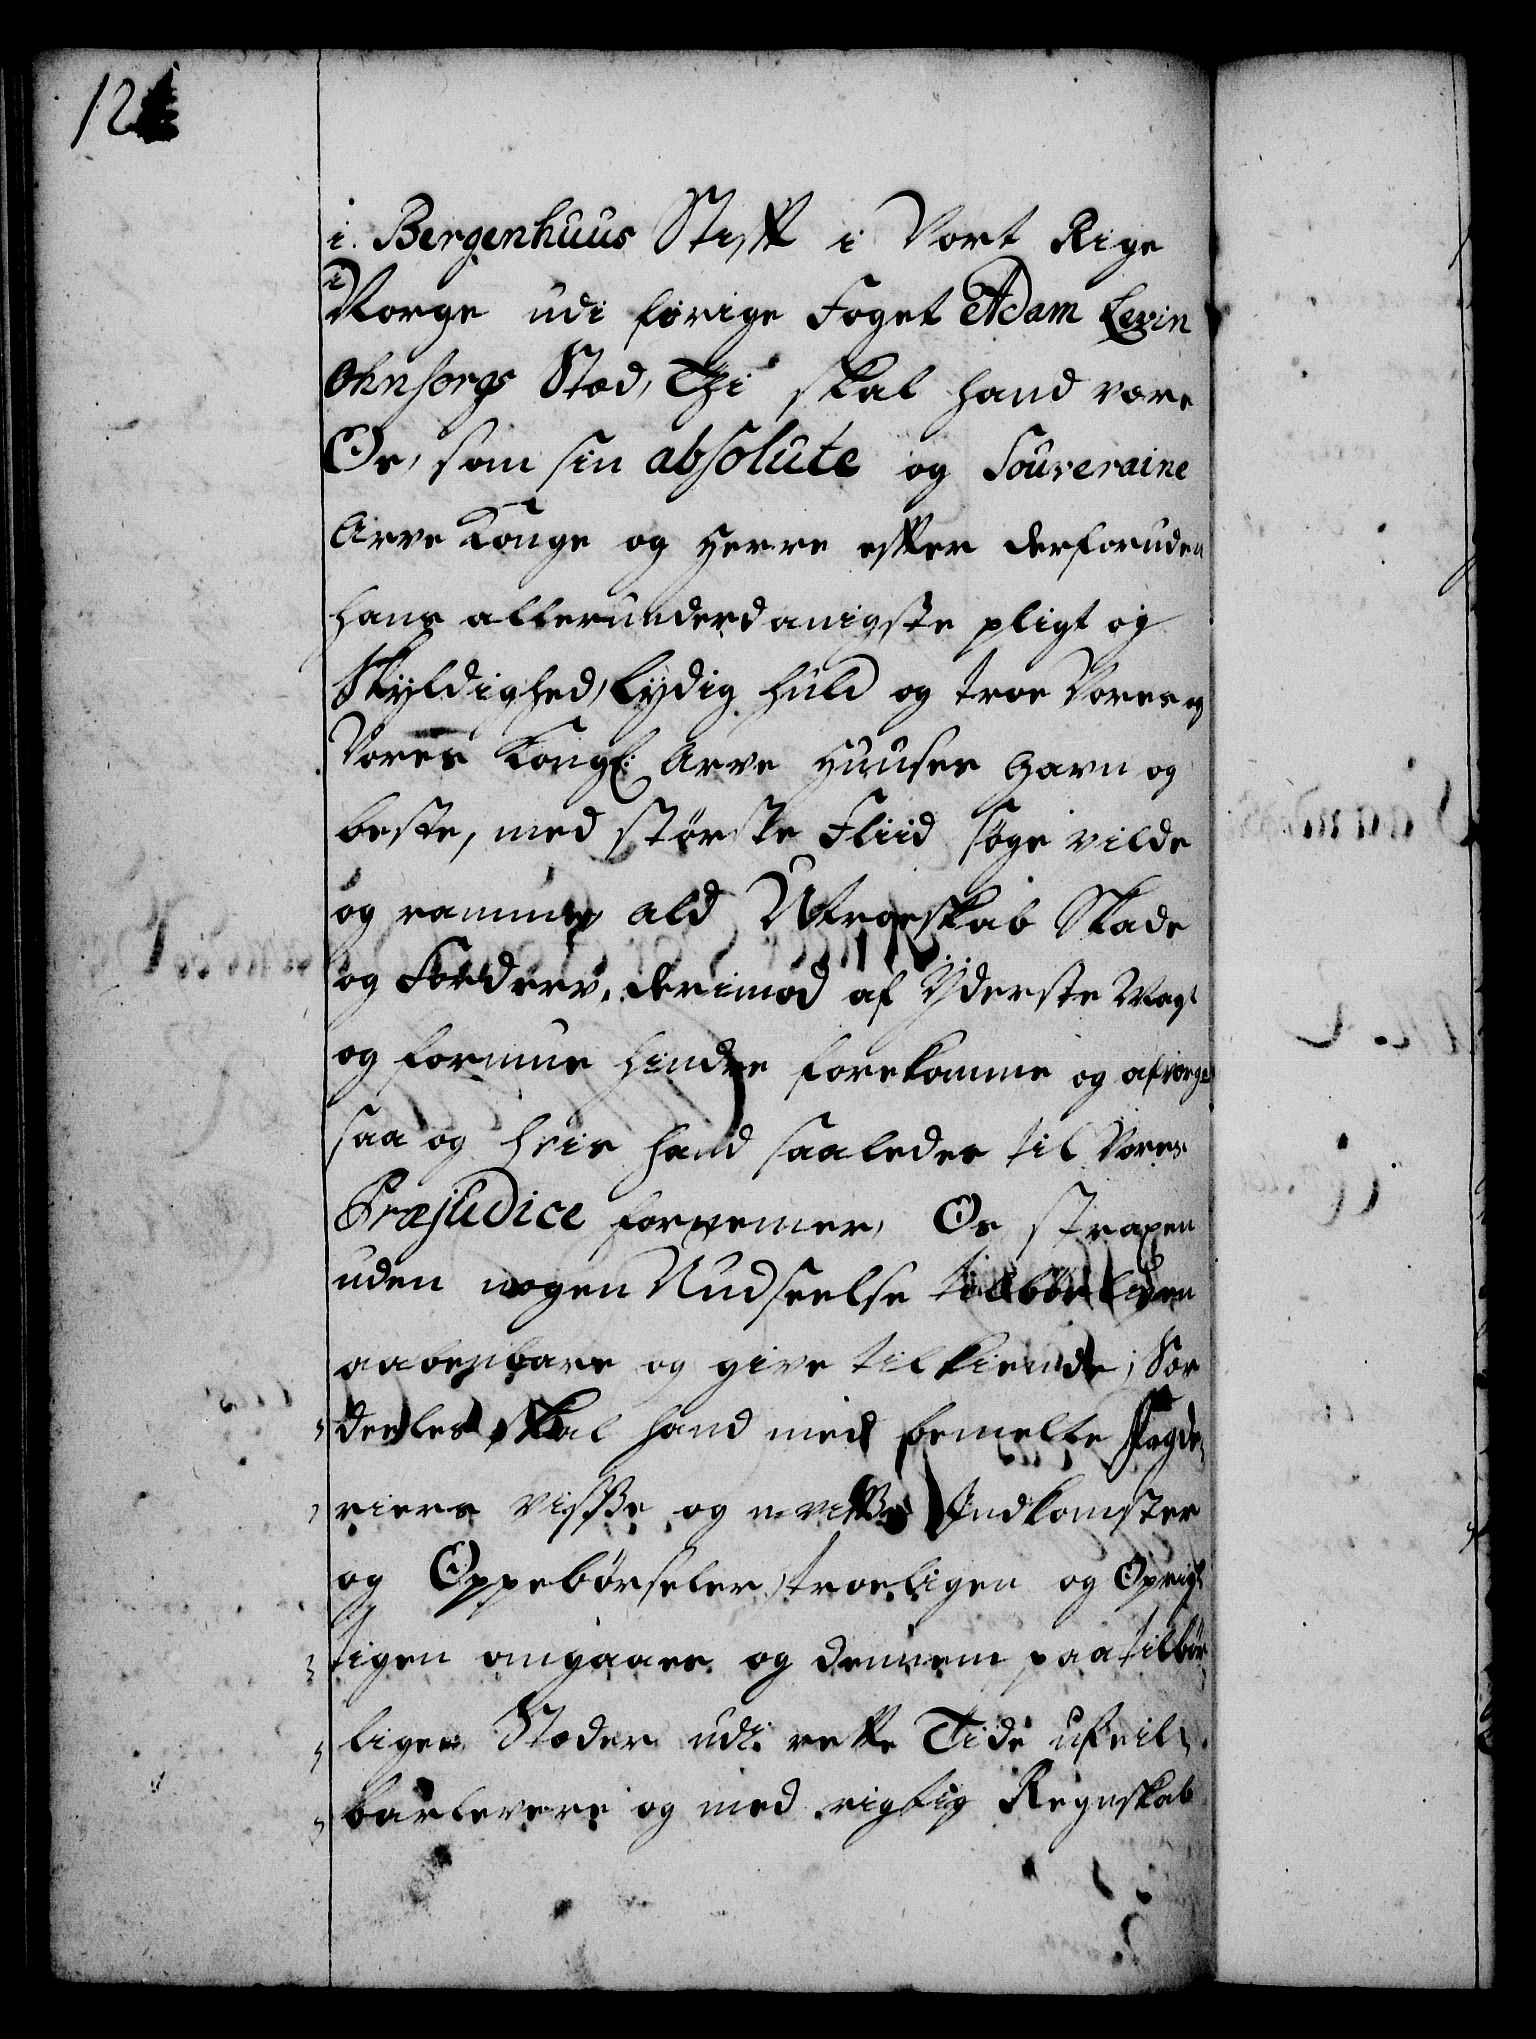 12
i Bergenhuus Stift i Vort Rige
Norge udi forige Foget Adam Levin
Ohnsorgs Stæd, Thi skal hand være
Os, som sin absolute og Souveraine
Arve Konge og Herre efter derforuden
hans allerunderdanigste pligt og
Skyldighed, lydig huld og troe Vores og
Vores Kongl: Arve Huuses Gavn og
beste, med største Fliid søge vilde
og ramme, ald Utroeskab Skade
og Forderv, derimod af Yderste Magt
og formue hindre forekomme og afværge
saa og hvis hand saaledes til Vores
Præjudice fornemer, Os straxen
uden nogen Undseelse tilbørligen
aabenbare og give tilkiende; Sær
deeles skal hand med bemelte Fogde,
riers visse og uvisse Indkomster
og Oppebørseler, troeligen og Oprigt
tigen omgaaes og dennem paa tilbør
ligen Stæder udi rette Tide ufeil,
bar levere og med rigtig Regnskab